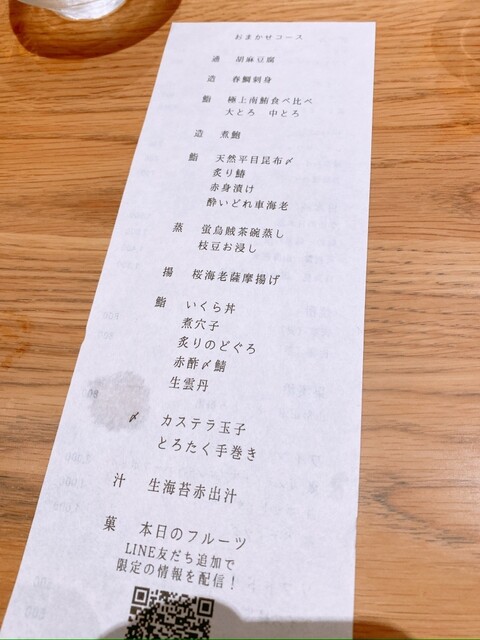 おまかせコース
通 胡麻豆腐
造 春鯛刺身
鮨 極上南鮪食べ比べ
大とろ 中とろ
造 煮鮑
鮨 天然平目昆布〆
炙り鰆
赤身漬け
酔いどれ車海老
蒸 蛍烏賊茶碗蒸し
枝豆お浸し
揚 桜海老薩摩揚げ
鮨 いくら丼
煮穴子
炙りのどぐろ
赤酢〆鯖
生雲丹
〆 カステラ玉子
とろたく手巻き
汁 生海苔赤出汁
菓 本日のフルーツ
LINE友だち追加で
限定の情報を配信!